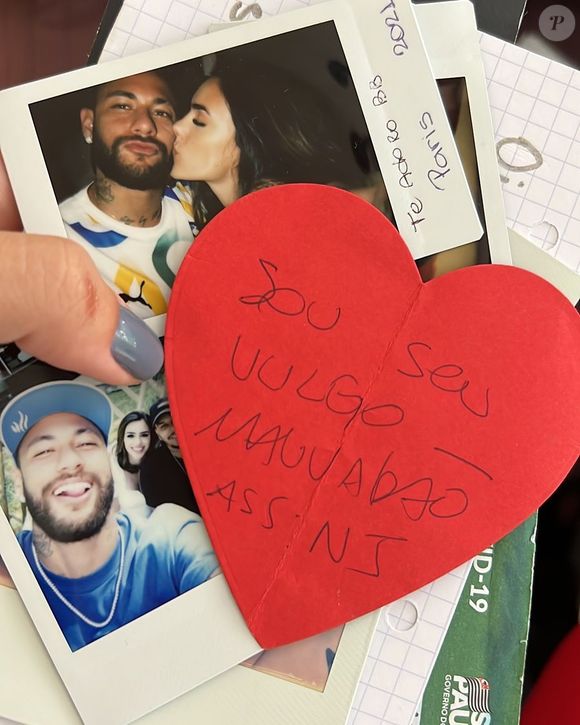 P
2021
Te Adoro Bib
Paris
Sou Seu
VULGO
MALVADÃO
ASS: NJ
ID-19
PAU
GOVERNO DO